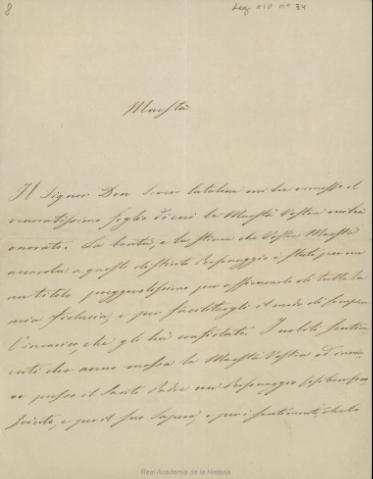 8
Leg XIV nº 34
Maestà
Il Signor Don Severo Catalina mi ha rimesso il
veneratissimo foglio di cui la Maestà Vostra mi ha
onorato. La bontà, e la stima che Vostra Maestà
accorda a questo distinto Personaggio è stato per me
un titolo pregevolissimo per affidarmi di tutta la
mia fiducia, e per facilitargli il modo di
l'incarico, che gli ha confidato. I nobili sentimenti
che anno mossa la Maestà Vostra ad
presso il Santo Padre un Personaggio
, e per il suo sapere, e per i sentimenti, che lo
Real Academia de la Historia